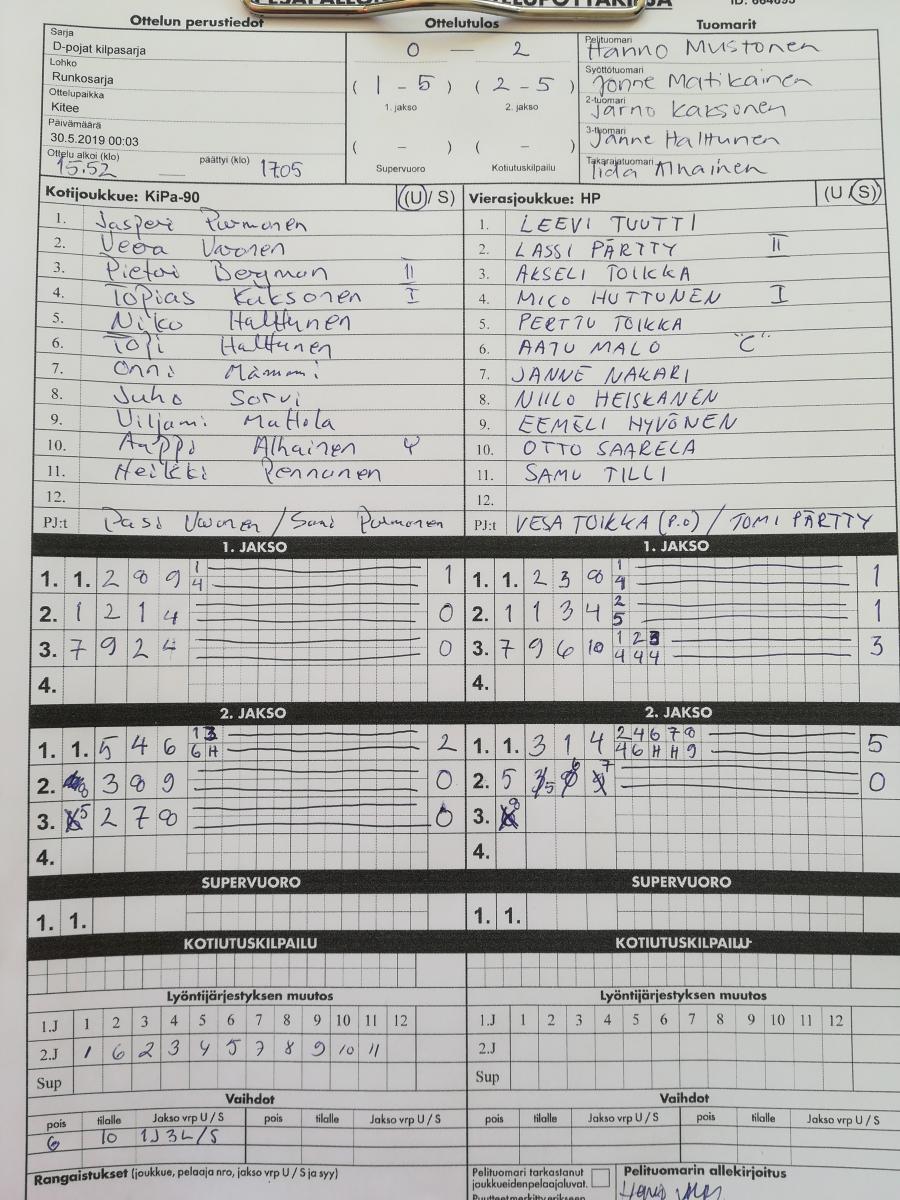 ID: 664095
Ottelun perustiedot
Sarja
D-pojat kilpasarja
Lohko
Runkosarja
Ottelupaikka
Kitee
Päivämäärä
30.5.2019 00:03
Ottelu alkoi (klo) päättyi (klo)
15.52 — 1705
Ottelutulos
0 — 2
( 1 - 5 ) ( 2 - 5 )
1. jakso 2. jakso
( - ) ( - )
Supervuoro Kotiutuskilpailu
Tuomarit
Pelituomari
Hanno Mustonen
Syöttötuomari
Jonne Matikainen
2-tuomari
Jarno Kaksonen
3-tuomari
Janne Halttunen
Takarajatuomari
Iida Alhainen
Kotijoukkue: KiPa-90 (U/ S)
1. Jasperi Purmonen
2. Veera Varonen
3. Pietari Bergman II
4. Topias Kaksonen I
5. Niko Halttunen
6. Topi Halttunen
7. Onni Mämmi
8. Juho Sorvi
9. Viljami Mattola
10. Aappo Alhainen
11. Heikki Pennanen
12.
PJ:t Pasi Varonen / Sami Purmonen
Vierasjoukkue: HP (U / S)
1. LEEVI TUUTTI
2. LASSI PÄRTTY II
3. AKSELI TOIKKA
4. MICO HUTTUNEN I
5. PERTTU TOIKKA
6. AATU MALO "C"
7. JANNE NAKARI
8. NIILO HEISKANEN
9. EEMELI HYVÖNEN
10. OTTO SAARELA
11. SAMU TILLI
12.
PJ:t VESA TOIKKA (P.O) / TOMI PÄRTTY
1. JAKSO
1. 1. 2 8 9 1 1
4
2. 1 2 1 4 0
3. 7 9 2 4 0
4.
1. JAKSO
1. 1. 2 3 8 1 1
4
2. 1 1 3 4 2 1
5
3. 7 9 6 10 1 2 3 3
4 4 4
4.
2. JAKSO
1. 1. 5 4 6 1 3 2
6 H
2. 8 3 8 9 0
3. 5 2 7 8 0
4.
2. JAKSO
1. 1. 3 1 4 2 4 6 7 8 5
4 6 H H 9
2. 5 5 6 7 0
3. 8
4.
SUPERVUORO
1. 1.
SUPERVUORO
1. 1.
KOTIUTUSKILPAILU
KOTIUTUSKILPAILU
Lyöntijärjestyksen muutos
1.J 1 2 3 4 5 6 7 8 9 10 11 12
2.J 1 6 2 3 4 5 7 8 9 10 11
Sup
Lyöntijärjestyksen muutos
1.J 1 2 3 4 5 6 7 8 9 10 11 12
2.J
Sup
Vaihdot
pois tilalle Jakso vrp U / S pois tilalle Jakso vrp U / S
6 10 1J 3L/S
Vaihdot
pois tilalle Jakso vrp U / S pois tilalle Jakso vrp U / S
Rangaistukset (joukkue, pelaaja nro, jakso vrp U / S ja syy)
Pelituomari tarkastanut
joukkueidenpelaajaluvat.
Pelituomarin allekirjoitus